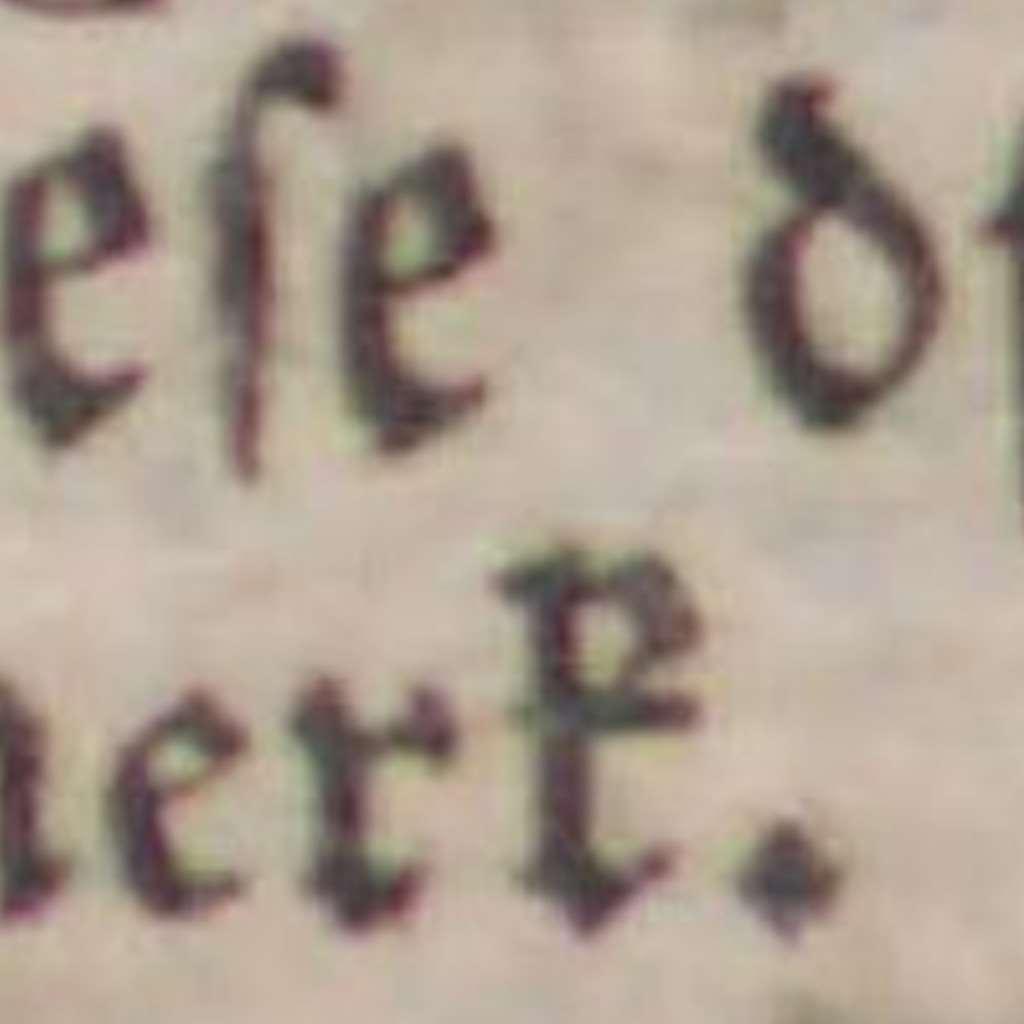 eſe d
erk.